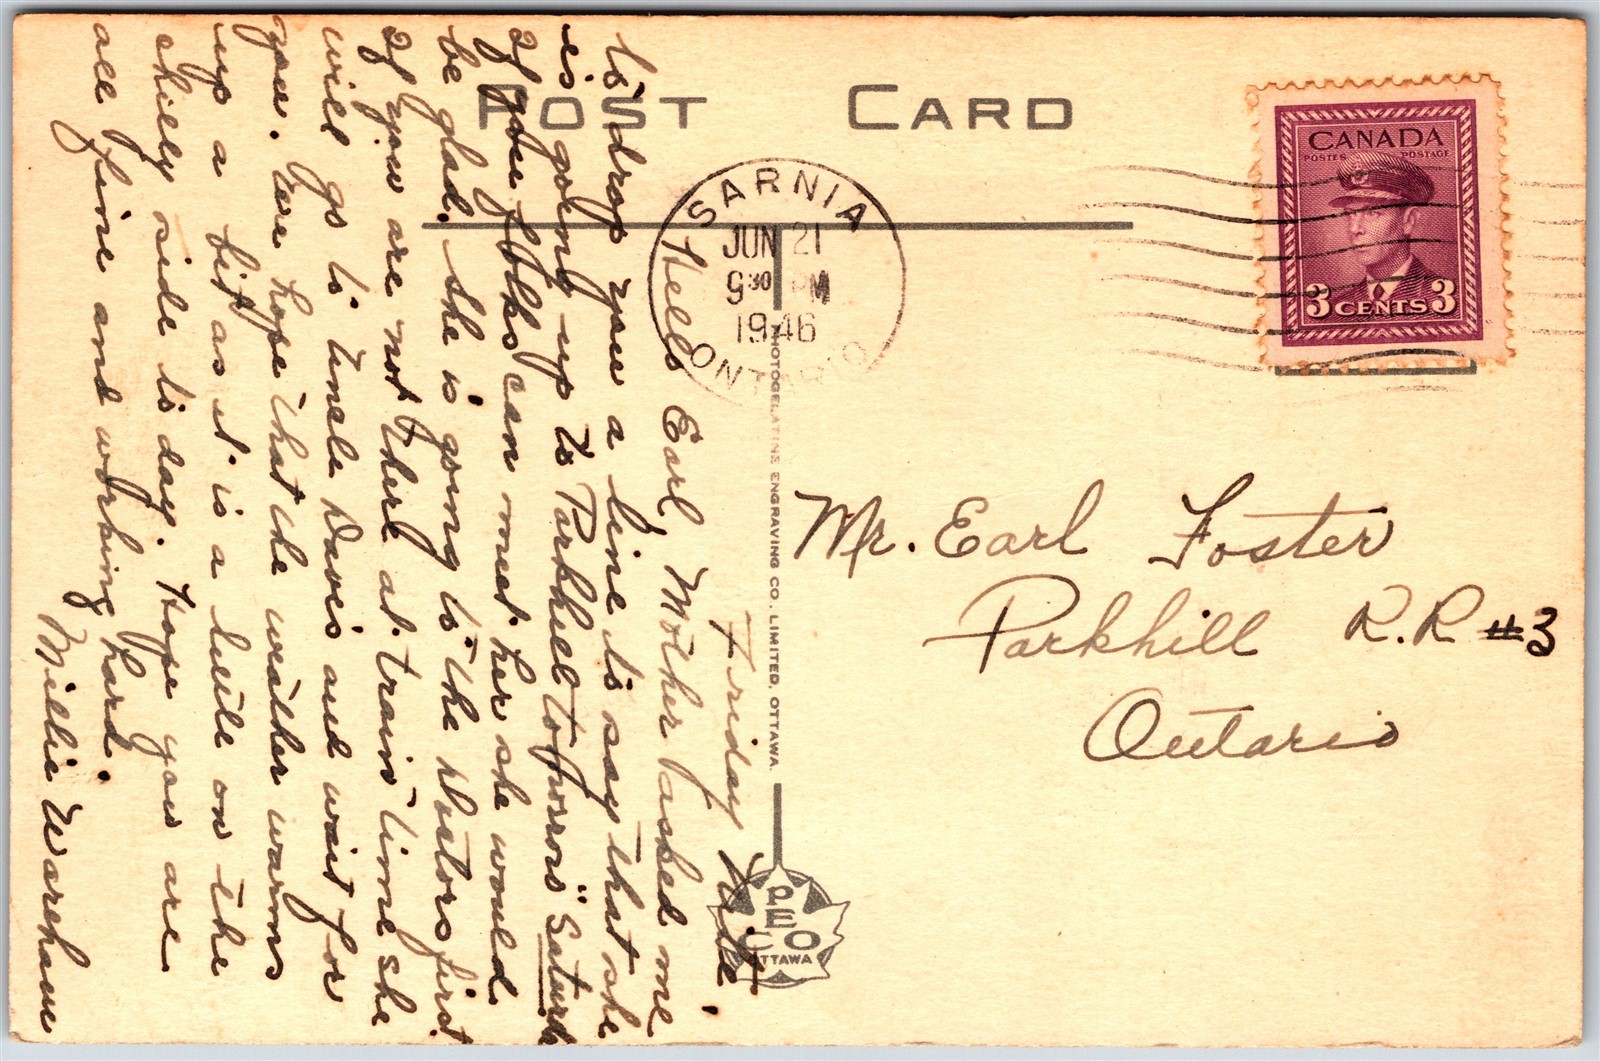 POST CARD
CANADA
POSTES POSTAGE
3 CENTS 3
SARNIA
JUN 21
9 30 PM
1946
ONTARIO
Mr. Earl Foster
Parkhill R.R #3
Ontario
PHOTOGELATINE ENGRAVING CO. LIMITED, OTTAWA.
PECO
OTTAWA
Friday Nite,
Hello Earl, Mother asked me
to drop you a line to say that she
is going up to Parkhill tomorrow "Saturday
If you folks can meet her she would
be glad. She is going to the Doctors first
If you are not there at train time she
will go to Uncle Dave's and wait for
you. Here hope that the weather warms
up a bit as it is a little on the
chilly side to day. Hope you are
all fine and working hard.
Millie Wareham